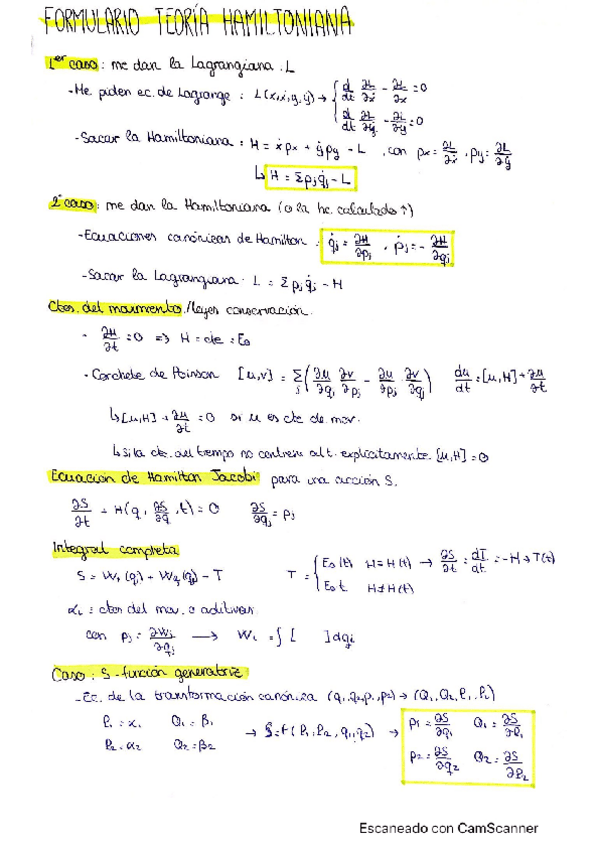 FORMULARIO TEORÍA HAMILTONIANA
1er caso: me dan la Lagrangiana: L
- Me piden ec. de Lagrange: L(x,ẋ,y,ẏ) → { d/dt ∂L/∂ẋ - ∂L/∂x = 0
d/dt ∂L/∂ẏ - ∂L/∂y = 0
- Sacar la Hamiltoniana: H = ẋpx + ẏpy - L, con px = ∂L/∂ẋ, py = ∂L/∂ẏ
↳ H = Σpj q̇j - L
2º caso: me dan la Hamiltoniana (o la he calculado ↑)
- Ecuaciones canónicas de Hamilton: q̇j = ∂H/∂pj, ṗj = -∂H/∂qj
- Sacar la Lagrangiana: L = Σpj q̇j - H
Ctes. del movimiento/leyes conservación.
- ∂H/∂t = 0 => H = cte = E0
- Corchete de Poisson [u,v] = Σj (∂u/∂qj ∂v/∂pj - ∂u/∂pj ∂v/∂qj) du/dt = [u,H] + ∂u/∂t
↳ [u,H] + ∂u/∂t = 0 si u es cte de mov.
↳ si la cte. del tiempo no contiene al t. explícitamente. [u,H] = 0
Ecuación de Hamilton Jacobi para una acción S.
∂S/∂t + H(q, ∂S/∂q, t) = 0 ∂S/∂qj = pj
Integral completa
S = W1(qi) + W2(qj) - T T = { E0(t) H = H(t) → ∂S/∂t = dT/dt = -H → T(t)
E0t H ≠ H(t)
αi = ctes del mov. o aditivas.
con pj = ∂Wj/∂qj → Wi = ∫[ ]dqi
Caso: S - función generatriz
- Ec. de la transformación canónica (q1,q2,p1,p2) → (Q1,Q2,P1,P2)
P1 = α1 Q1 = β1
P2 = α2 Q2 = β2 → S = f(P1,P2,q1,q2) →
p1 = ∂S/∂q1 Q1 = ∂S/∂P1
p2 = ∂S/∂q2 Q2 = ∂S/∂P2
Escaneado con CamScanner